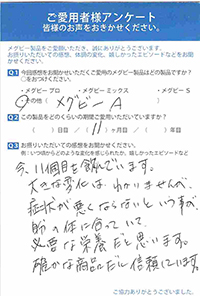 ご愛用者様アンケート
皆様のお声をおきかせください。
メグビー製品をご愛顧いただき、誠にありがとうございます。
お摂りいただいての感想、体調の変化、嬉しかったエピソードなどをお聞かせください。
Q1 今回感想をお聞かせいただくご愛用のメグビー製品はどの製品ですか?
○をおつけください。
・メグビー プロ ・メグビー ミックス ・メグビー S
その他( メグビー A )
Q2 この製品をどのくらいの期間ご愛用いただいていますか?
( )日目 ／ ( 11 )ヶ月目 ／ ( )年目
Q3 お摂りいただいての感想をお聞かせください。
今、11個目を飲んでいます。
大きな変化は、わかりませんが、
症状が悪くならないという事が、
私の体に合っていて、
必要な栄養だと思います。
確かな商品だと信頼しています。
ご協力ありがとうございました。